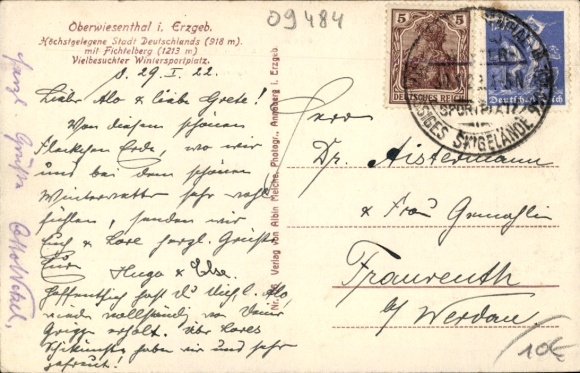 09484
Oberwiesenthal i. Erzgeb.
Höchstgelegene Stadt Deutschlands (918 m).
mit Fichtelberg (1213 m)
Vielbesuchter Wintersportplatz.
d. 29. I. 22.
Liebe Alo & liebe Grete!
Von diesem schönen
Fleckchen Erde, wo wir
uns bei dem schönen
Winterwetter sehr wohl
fühlen, senden wir
Euch & Lore herzl. Grüße
Eure Hugo & Else.
Hoffentlich hast du dich, l. Alo,
wieder vollständig von deiner
Grippe erholt. Über Lores
Schikünste haben wir uns sehr
gefreut!
Herzl. Grüße
Nr. Verlag von Albin Meiche, Photogr., Annaberg i. Erzgeb.
5 5
DEUTSCHES REICH
Deutsches Reich
SPORTPLATZ
SKIGELÄNDE
Herrn
Dr. Aistermann
& Frau Gemahlin
Fraureuth
b/ Werdau
10€